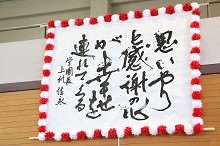 思いやり
と感謝の心
が幸せを
連れてくる
学園長
上村佳永